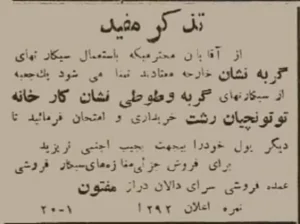 تذکر مفید
از آقایان محترمیکه باستعمال سیگارتهای
گربه نشان خارجه معتادند تمنا می شود یکجعبه
از سیگارتهای گربه وطوطی نشان کار خانه
توتونچیان رشت خریداری و امتحان فرمائید تا
دیگر پول خودرا بیجهت بجیب اجنبی نریزید
برای فروش جزئی مغازه‌های سیگار فروشی
عمده فروشی سرای دالان دراز مفتون
نمره اعلان ۱۲۹۲ ۲۰-۱